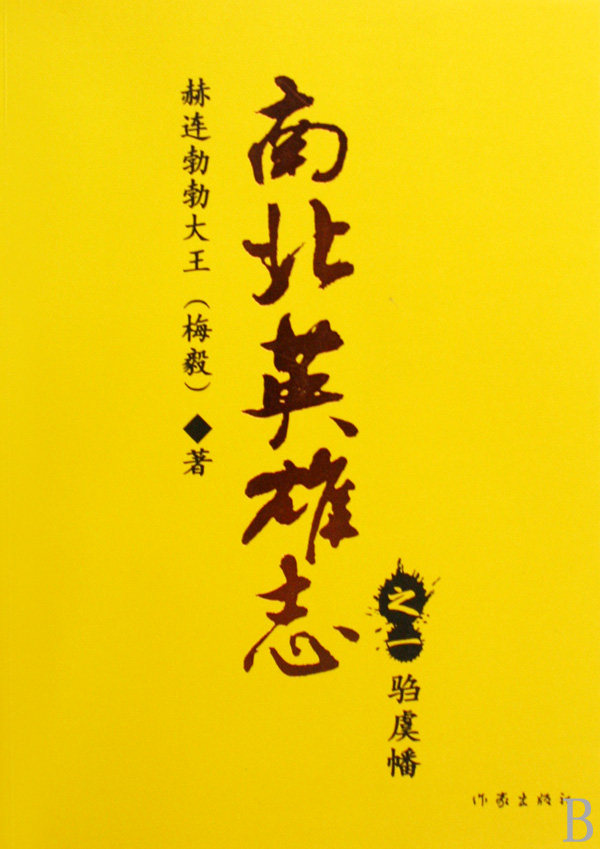 赫连勃勃大王（梅毅）◆著
南北英雄志
之二
驺虞幡
作家出版社
B